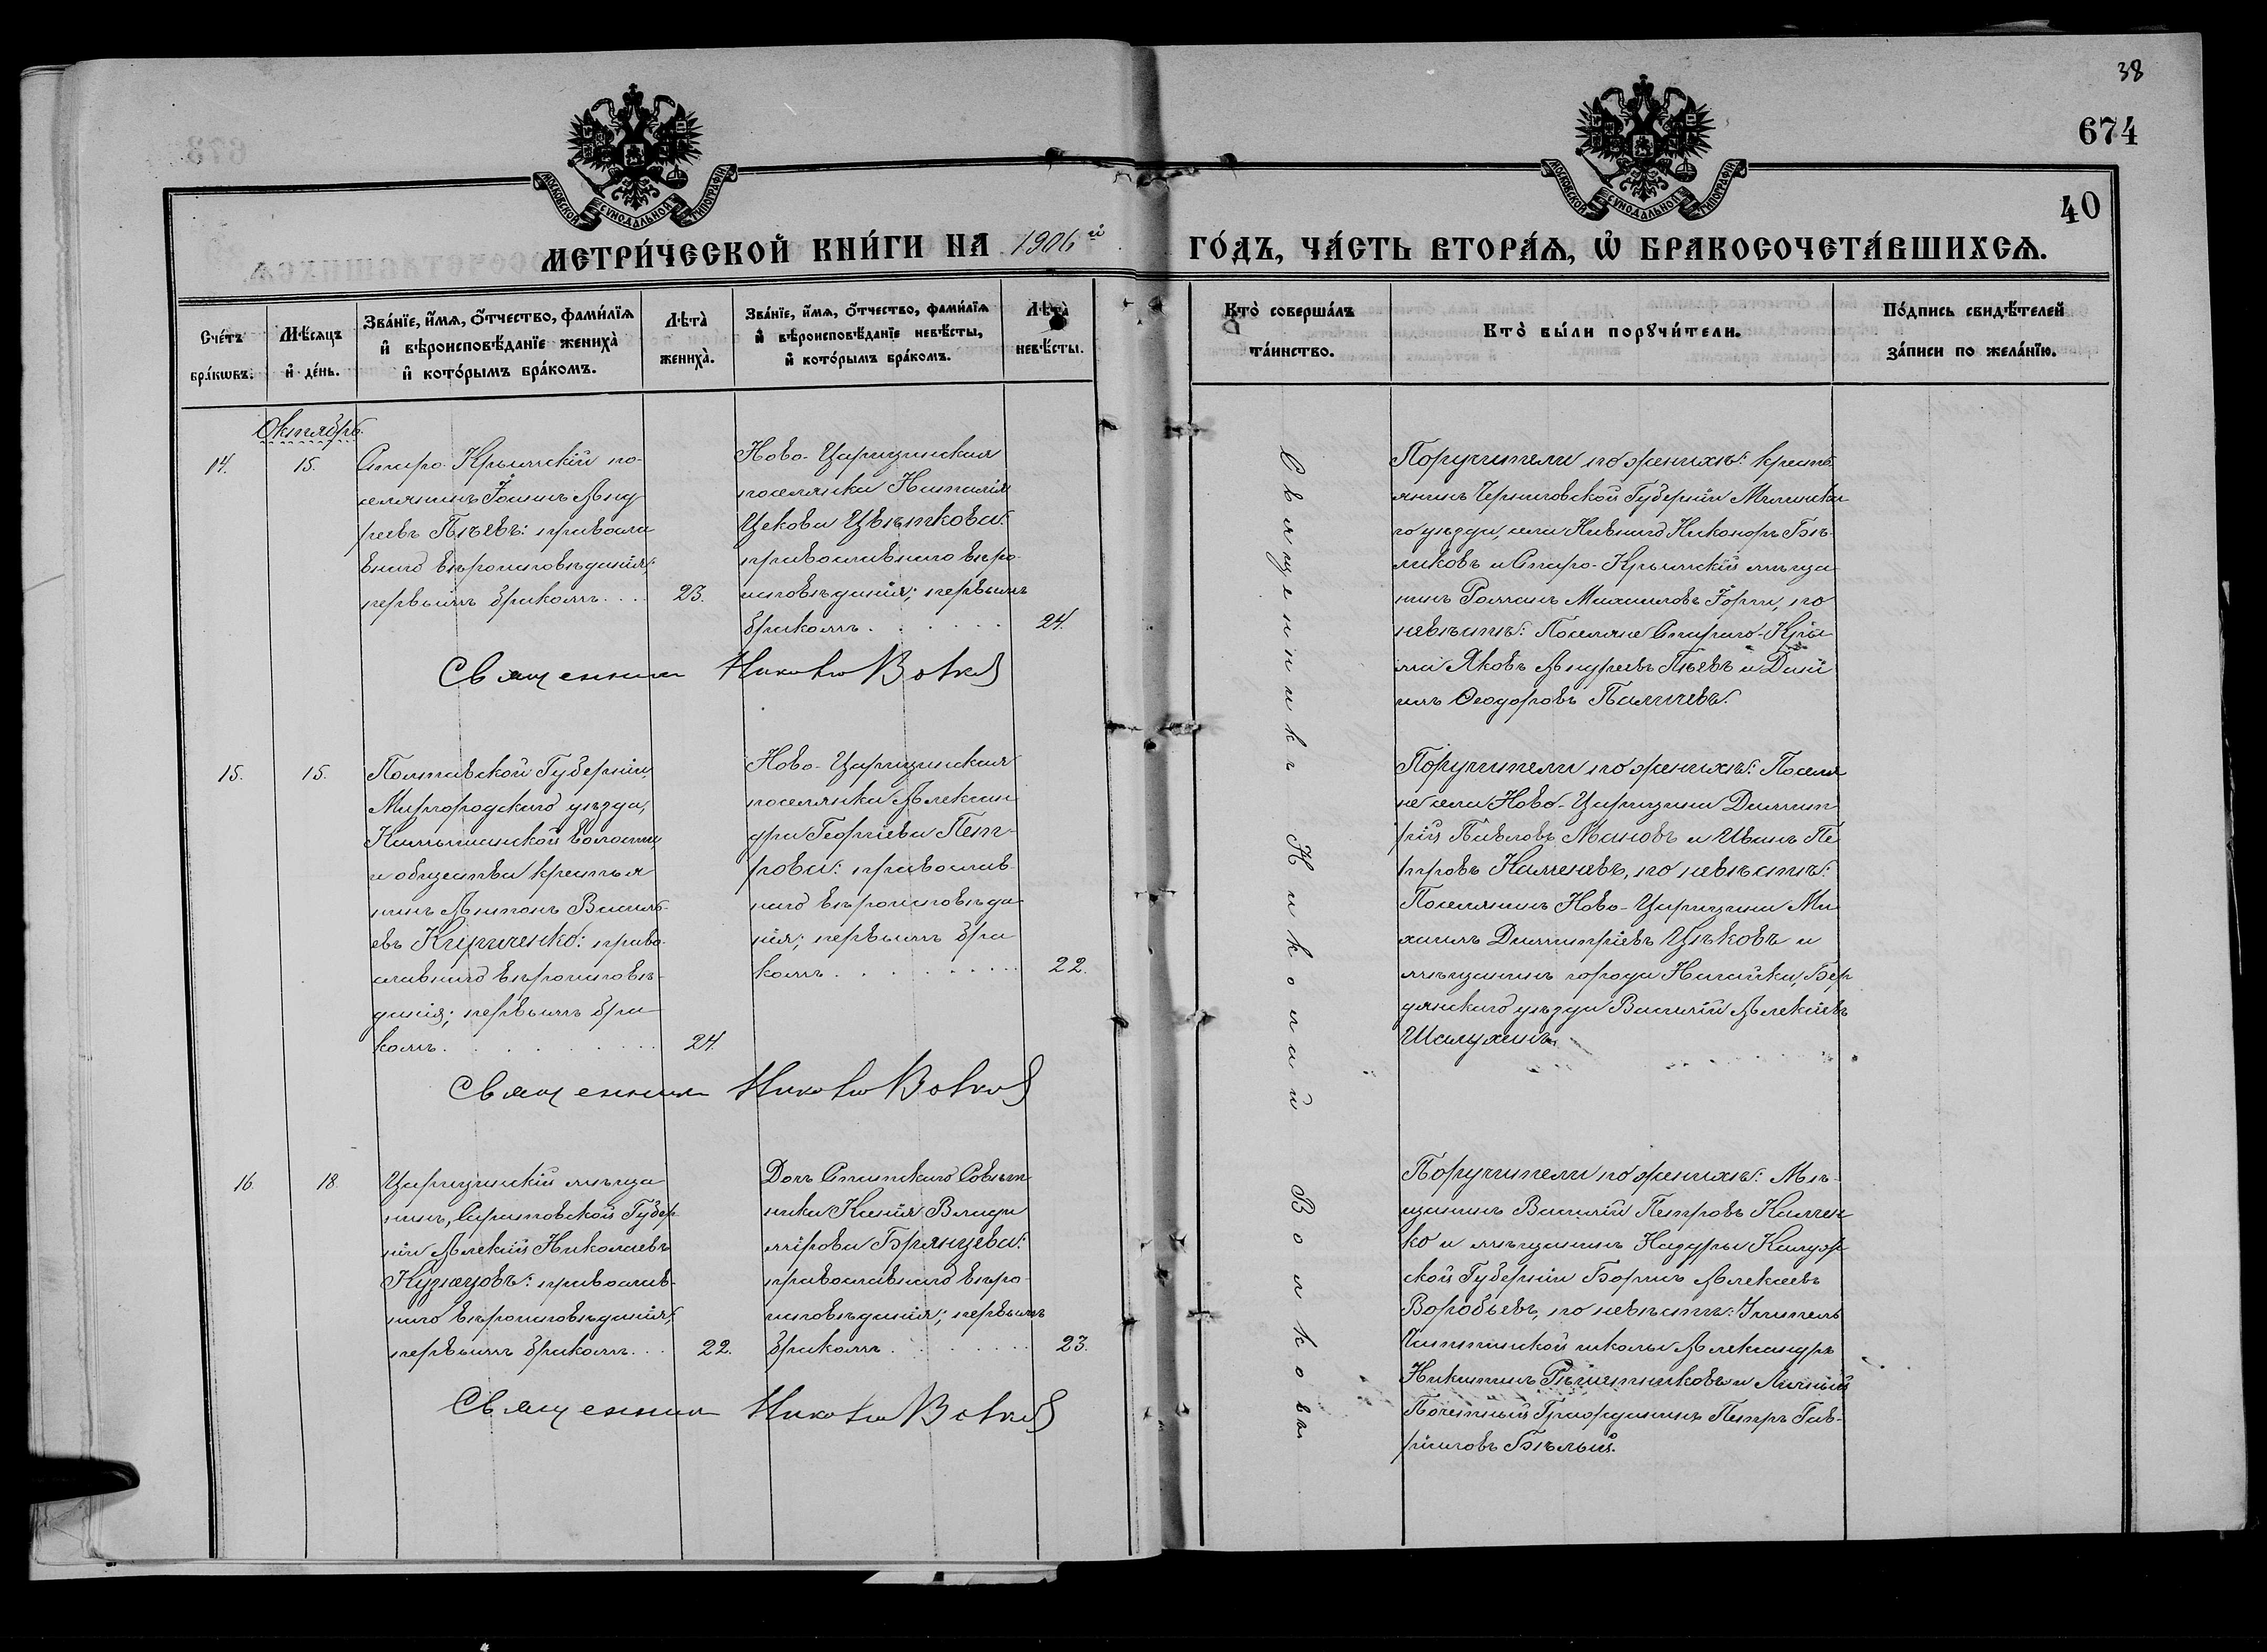 38
674
40
МОСКОВСКОЙ СѴНОДАЛЬНОЙ ТИПОГРАФІИ
МОСКОВСКОЙ СѴНОДАЛЬНОЙ ТИПОГРАФІИ
МЕТРИ́ЧЕСКОЙ КНИ́ГИ НА 1906й
ГО́ДЪ, ЧА́СТЬ ВТОРА́Я, Ѡ҆ БРАКОСОЧЕТА́ВШИХСЯ.
Сче́тъ бра́кωвъ.
Мѣ́сяцъ и҆ де́нь.
Зва́нїе, и҆́мя, ѻ҆́тчество, фами́лїя
и҆ вѣроисповѣ́данїе жениха̀
и҆ кото́рымъ бра́комъ.
Лѣта̀
жениха̀.
Зва́нїе, и҆́мя, ѻ҆́тчество, фами́лїя
и҆ вѣроисповѣ́данїе невѣ́сты,
и҆ кото́рымъ бра́комъ.
Лѣта̀
невѣ́сты.
Кто̀ соверша́лъ
та́инство.
Кто̀ бы́ли порꙋчи́тели.
По́дпись свидѣ́телей
за́писи по жела́нїю.
Октябрь.
14.
15.
Старо-Крымскій по-
селянинъ Іоаннъ Анд
реевъ Пѣевъ: правосла
внаго вѣроисповѣданія;
первымъ бракомъ....
23.
Ново-Царицынская
поселянка Наталія
Цекова Цвѣткова:
православнаго вѣро-
исповѣданія; первымъ
бракомъ......
24.
Священник Николай Волков
Поручители по женихѣ: кресть
янинъ Черниговской Губерніи Мглинска-
го уѣзда, села Кивнаго Никоноръ Бѣ-
ликовъ и Старо-Крымскій мѣща
нинъ Романъ Михаиловъ Іорги, по
невѣстѣ: Поселяне Стараго-Кры
ма Яковъ Андреевъ Пѣевъ и Дані
илъ Ѳеодоровъ Паличевъ.
15.
15.
Полтавской Губерніи,
Миргородскаго уѣзда,
Камышанской волости,
и общества крестья
нинъ Антонъ Василь-
евъ Кириченко: право-
славнаго вѣроисповѣ-
данія; первымъ бра
комъ..........
24.
Ново-Царицынская
поселянка Алексан
дра Георгіева Пет-
рова: православ-
наго вѣроисповѣда
нія; первымъ бра
комъ.........
22.
Священник Николай Волков
Поручители по женихѣ: Поселя
не села Ново-Царицына Димит
рій Павловъ Мановъ и Иванъ Пе
тровъ Каменевъ, по невѣстѣ:
Поселянинъ Ново-Царицына Ми
хаилъ Димитріевъ Цѣковъ и
мѣщанинъ города Ногайска, Бер
дянскаго уѣзда Василій Алексіевъ
Шалухинъ.
16
18.
Царицынскій мѣща
нинъ, Саратовской Губер-
ніи Алексій Николаевъ
Кузнецовъ: православ-
наго вѣроисповѣданія;
первымъ бракомъ...
22.
Дочь Статскаго Совѣт
ника Ксенія Влади
мірова Брянцева:
православнаго вѣро-
исповѣданія; первымъ
бракомъ.......
23.
Священник Николай Волков
Поручители по женихѣ: Мѣ-
щанинъ Василій Петровъ Каллен
ко и мѣщанинъ Кадуры Калуж
ской Губерніи Борисъ Алексеевъ
Воробьевъ, по невѣстѣ: Учитель
Александръ
Никитинъ Рѣшетниковъ и Личный
Почетный Гражданинъ Петръ Гав-
ріиловъ Бѣлый.
Священникъ Николай Волковъ